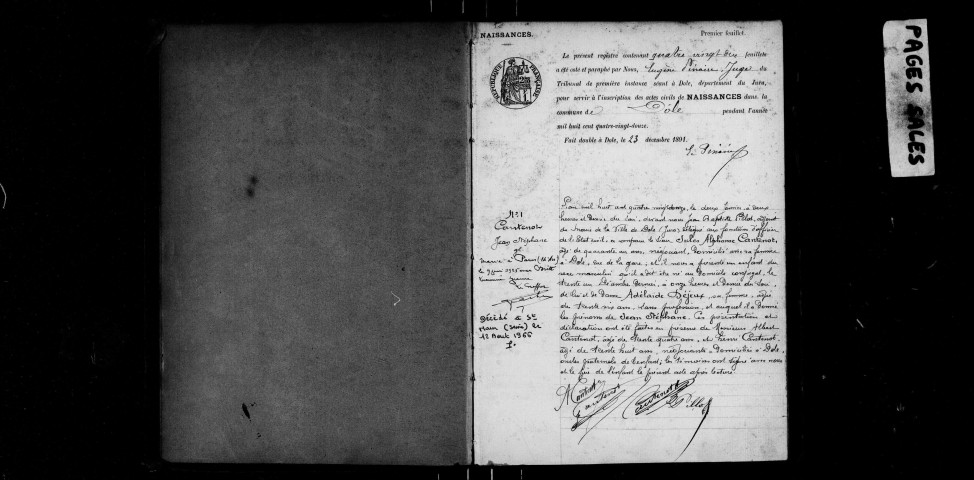 NAISSANCES.
Premier feuillet.
Le présent registre contenant quatre vingt dix feuillets
a été coté et paraphé par Nous, Eugène Juge du
Tribunal de première instance séant à Dole, département du Jura,
pour servir à l'inscription des actes civils de NAISSANCES dans la
commune de Dôle pendant l'année
mil huit cent quatre-vingt-douze.
Fait double à Dole, le 23 décembre 1891.
RÉPUBLIQUE FRANÇAISE
N° 1
Cantenot
Jean Stéphane
Marié à Paris
le 9 juin
Décédé à St
Maur (Seine) le
12 Aout 1966
L'an mil huit cent quatre vingt douze, le deux Janvier à deux
heures et demie du soir, devant nous Jean Baptiste Pillot, adjoint
au Maire de la Ville de Dole (Jura) délégué aux fonctions d'officier
de l'Etat civil, a comparu le sieur Jules Alphonse Cantenot,
âgé de quarante un ans, négociant, domicilié
à Dole, rue de la gare, et il nous a présenté un enfant du
sexe masculin qu'il a dit être né au domicile conjugal, le
trente un Décembre dernier, à onze heures et demie du soir,
de lui et de Dame Adélaïde Déjeux, sa femme, âgée
de trente six ans, sans profession, et auquel il a donné
les prénoms de Jean Stéphane. Ces présentation et
déclaration ont été faites en présence de Messieurs Albert
Cantenot, âgé de trente quatre ans, et Henri Cantenot,
âgé de trente huit ans, négociants domiciliés à Dole,
oncles paternels de l'enfant; les témoins ont signé avec nous
et le père de l'enfant le présent acte après lecture.
Cantenot
Cantenot
Pillot
PAGES SALES